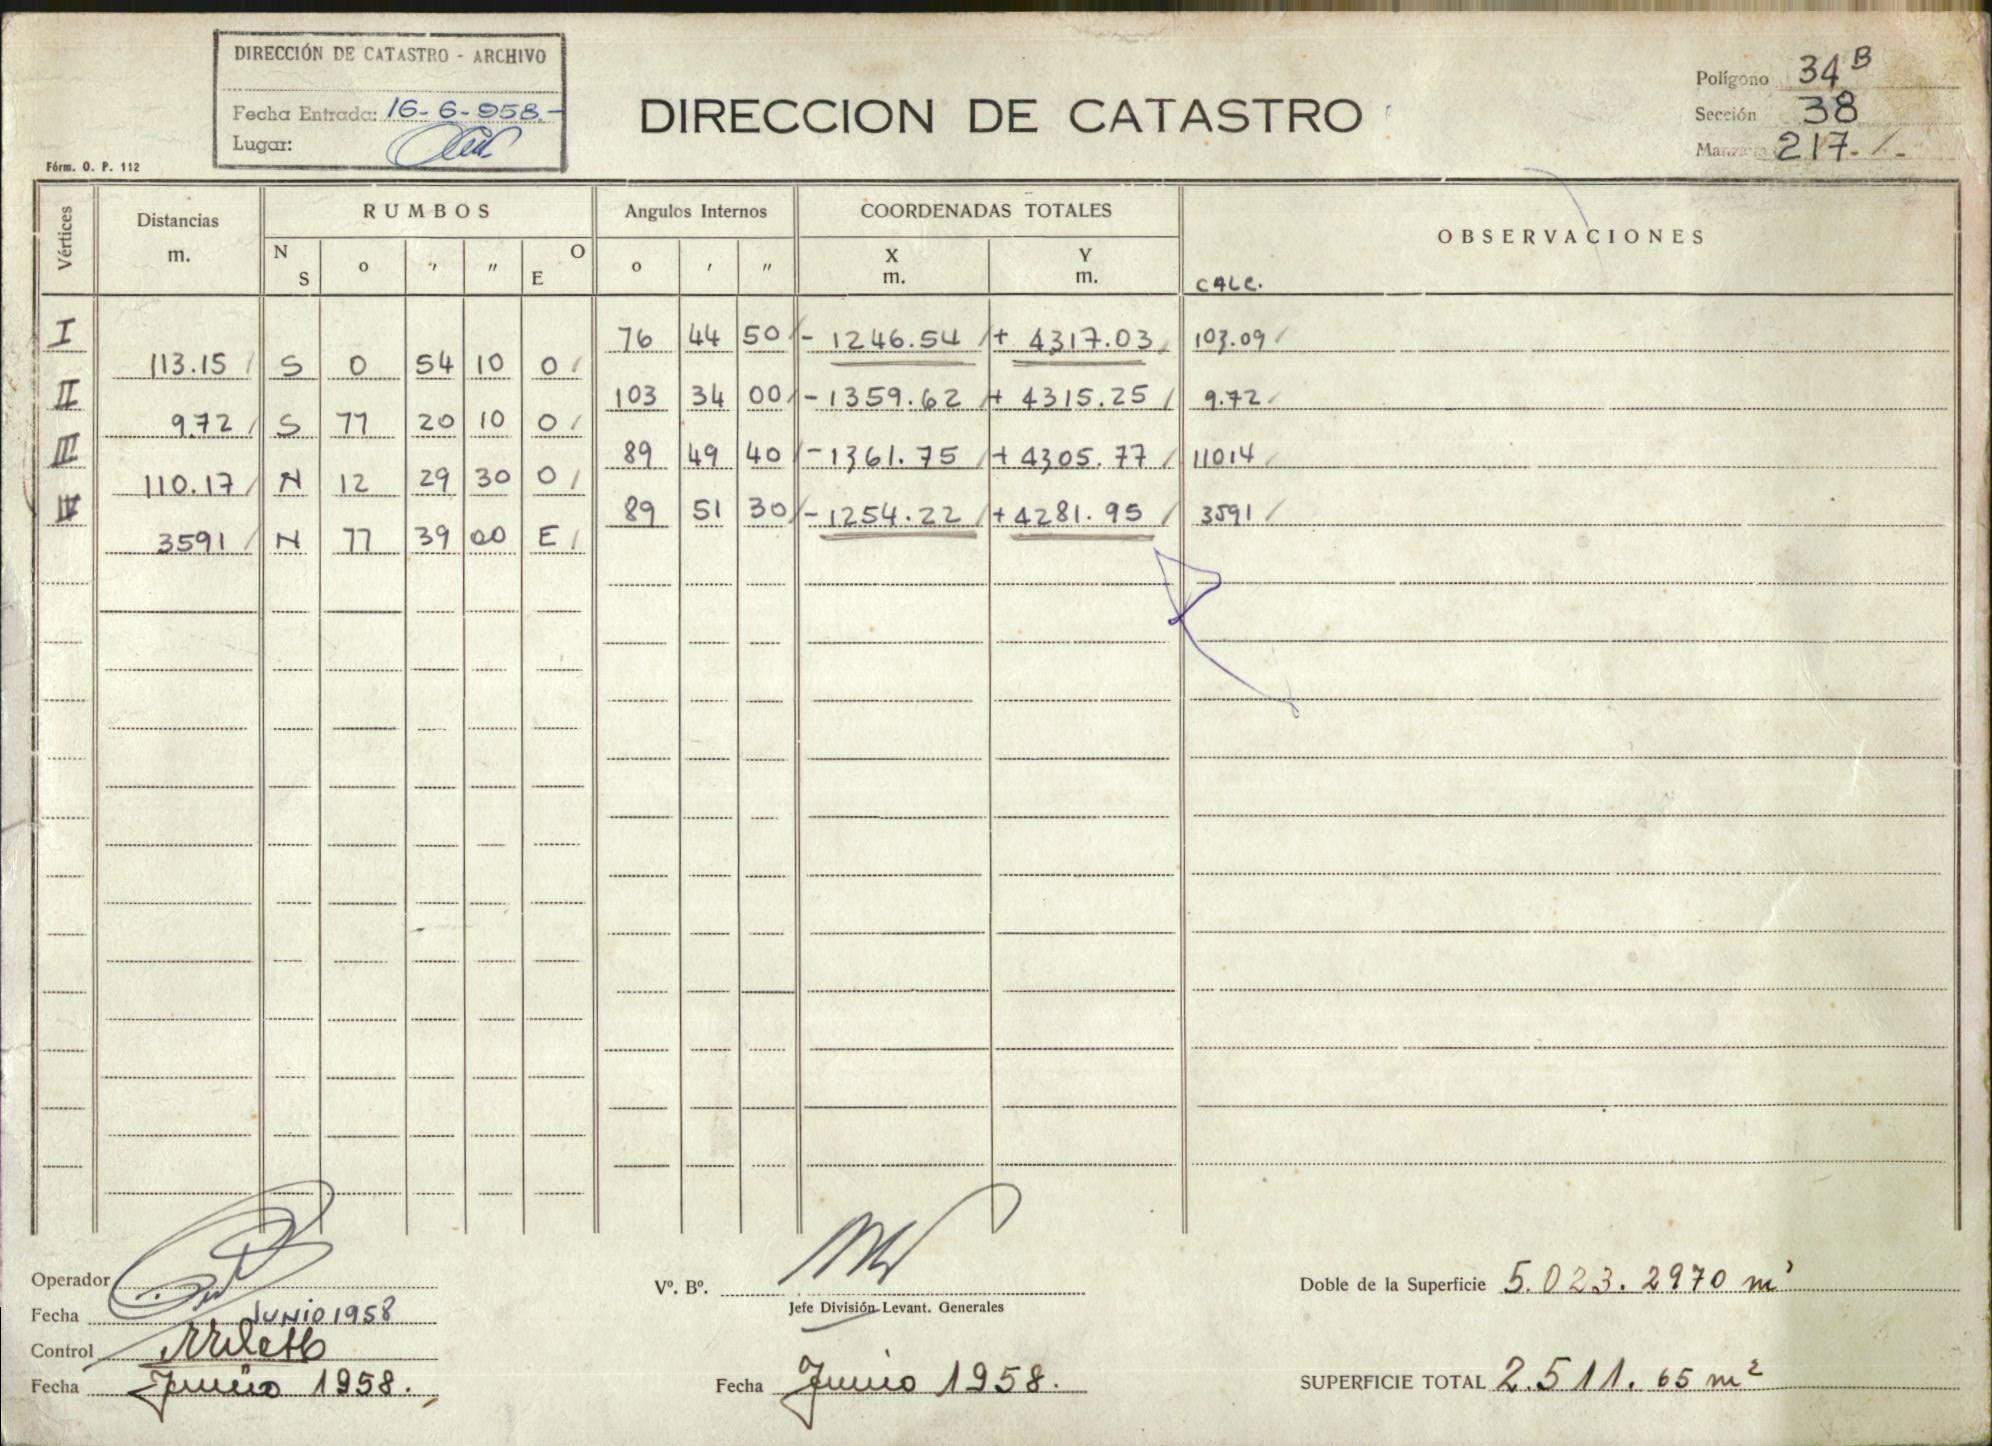 DIRECCIÓN DE CATASTRO - ARCHIVO
Fecha Entrada: 16-6-958.-
Lugar:
DIRECCION DE CATASTRO
Polígono 34 B
Sección 38
Manzana 217.-/.-
Fórm. O. P. 112
Vértices
Distancias m.
RUMBOS
N S o ' " O E
Angulos Internos
o ' "
COORDENADAS TOTALES
X m. Y m.
OBSERVACIONES
CALC.
I 76 44 50 / - 1246.54 / + 4317.03 / 103.09 /
113.15 / S 0 54 10 O /
II 103 34 00 / - 1359.62 / + 4315.25 / 9.72 /
9.72 / S 77 20 10 O /
III 89 49 40 / - 1361.75 / + 4305.77 / 11014 /
110.17 / N 12 29 30 O /
IV 89 51 30 / - 1254.22 / + 4281.95 / 3591 /
3591 / N 77 39 00 E /
Operador
Fecha JUNIO 1958
Control
Fecha Junio 1958.
Vº. Bº.
Jefe División Levant. Generales
Fecha Junio 1958.
Doble de la Superficie 5.023.2970 m²
SUPERFICIE TOTAL 2.511.65 m²